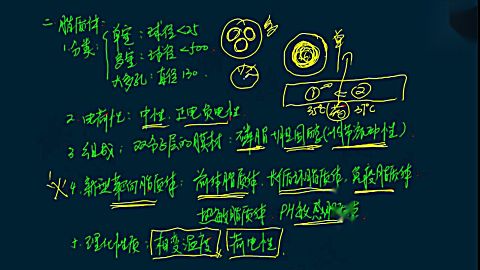 二 脂质体:
1分类: 单室:球径<25
多室:球径<500
大多孔:直径130
单
① ②
35℃ 37℃
2. 电荷性:中性,正电负电性
3 组成:双分子层的膜材:磷脂+胆固醇(调节流动性)
4. 新型靶向脂质体:前体脂质体,长循环脂质体,免疫脂质体
热敏脂质体 PH敏感
5. 理化性质:相变温度,荷电性.